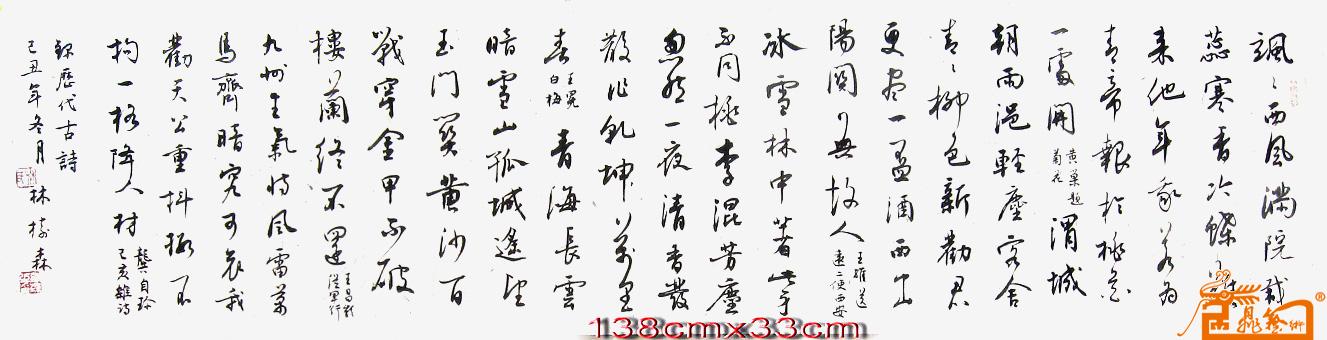 颯〻西風滿院栽
蕊寒香冷蝶難
來他年我若為
青帝報於桃花
一處開 黃巢題菊花 渭城
朝雨浥輕塵客舍
青〻柳色新勸君
更盡一盃酒西出
陽關無故人 王維送元二使西安
冰雪林中著此身
不同桃李混芳塵
忽然一夜清香發
散作乾坤萬里
春 王冕白梅 青海長雲
暗雪山孤城遙望
玉門關黃沙百
戰穿金甲不破
樓蘭終不還 王昌齡從軍行
九州生氣恃風雷萬
馬齊暗究可哀我
勸天公重抖擻不
拘一格降人材 龔自珍己亥雜詩
錄歷代古詩
己丑年冬月 林樹森
138cmx33cm